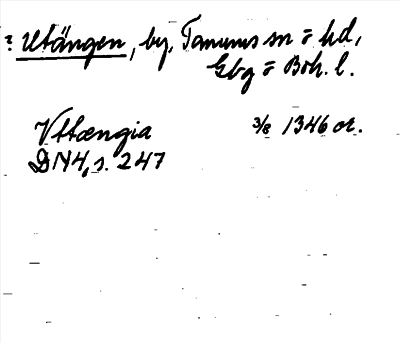 ? Utängen, by, Tanums sn o hd,
Gbg o Boh. l.
Vttængia 3/8 1346 or.
DN4, s. 247